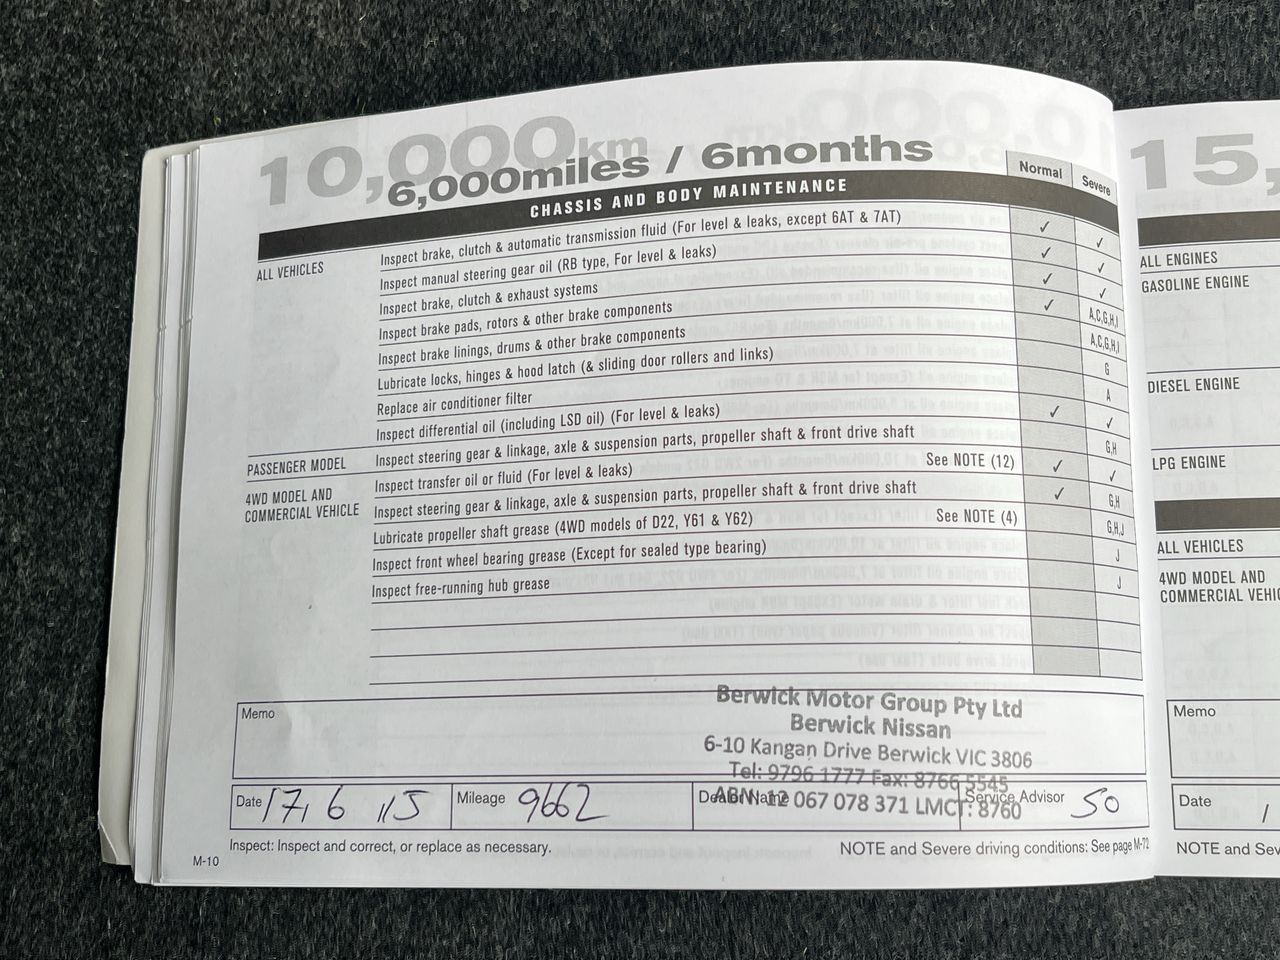 10,000km
6,000miles / 6months
Normal Severe
CHASSIS AND BODY MAINTENANCE
ALL VEHICLES
Inspect brake, clutch & automatic transmission fluid (For level & leaks, except 6AT & 7AT) ✓ ✓
Inspect manual steering gear oil (RB type, For level & leaks) ✓ ✓
Inspect brake, clutch & exhaust systems ✓ ✓
Inspect brake pads, rotors & other brake components ✓ A,C,G,H,I
Inspect brake linings, drums & other brake components A,C,G,H,I
Lubricate locks, hinges & hood latch (& sliding door rollers and links) G
Replace air conditioner filter A
Inspect differential oil (including LSD oil) (For level & leaks) ✓ ✓
PASSENGER MODEL Inspect steering gear & linkage, axle & suspension parts, propeller shaft & front drive shaft G,H
4WD MODEL AND
COMMERCIAL VEHICLE
Inspect transfer oil or fluid (For level & leaks) See NOTE (12) ✓ ✓
Inspect steering gear & linkage, axle & suspension parts, propeller shaft & front drive shaft ✓ G,H
Lubricate propeller shaft grease (4WD models of D22, Y61 & Y62) See NOTE (4) G,H,J
Inspect front wheel bearing grease (Except for sealed type bearing) J
Inspect free-running hub grease J
Memo
Berwick Motor Group Pty Ltd
Berwick Nissan
6-10 Kangan Drive Berwick VIC 3806
Tel: 9796 1777 Fax: 8766 5545
ABN: 12 067 078 371 LMCT: 8760
Date 17, 6 ,15 Mileage 9662 Dealer Name Service Advisor 50
Inspect: Inspect and correct, or replace as necessary. NOTE and Severe driving conditions: See page M-72
M-10
15,
ALL ENGINES
GASOLINE ENGINE
DIESEL ENGINE
LPG ENGINE
ALL VEHICLES
4WD MODEL AND
COMMERCIAL VEHIC
Memo
Date /
NOTE and Sev